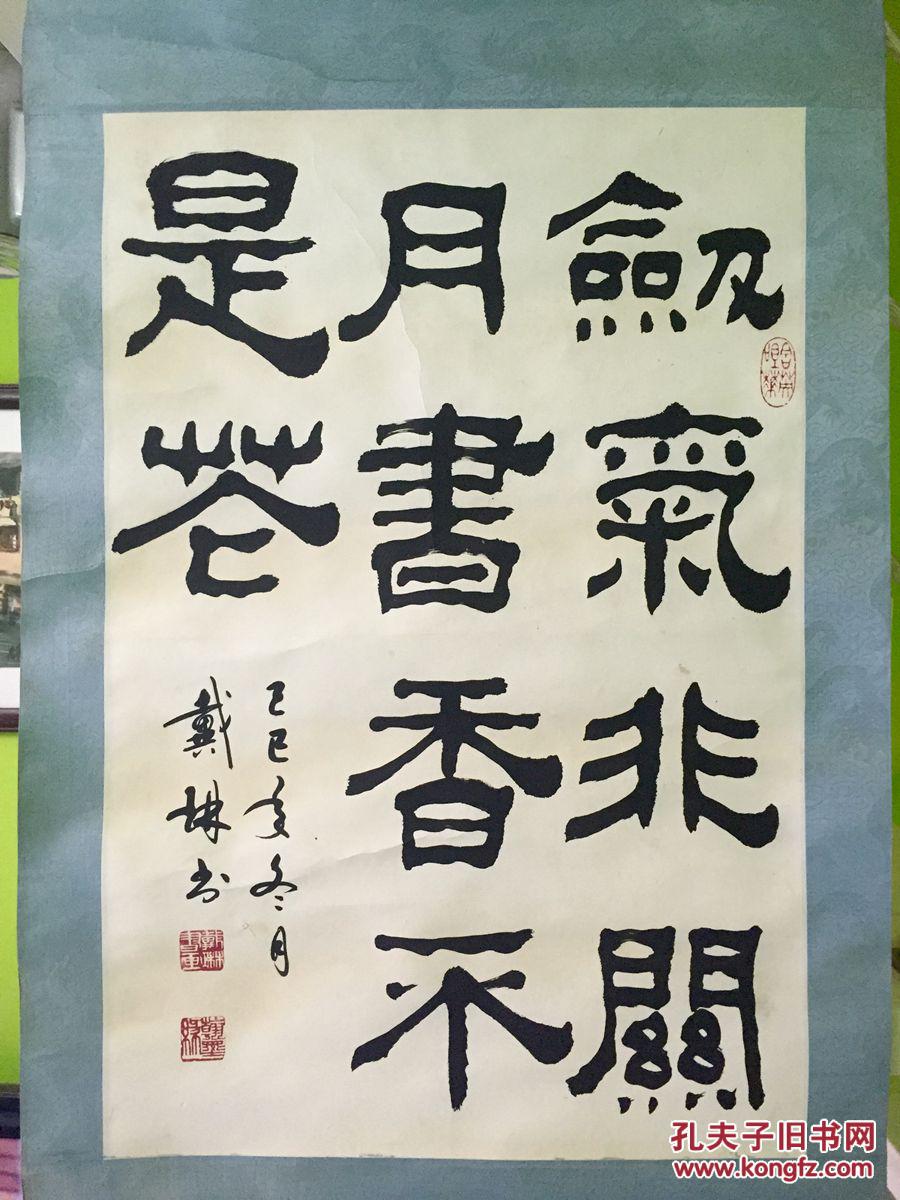 劔氣非關
月書香不
是花
己巳年冬月
戴琳书
孔夫子旧书网
www.kongfz.com